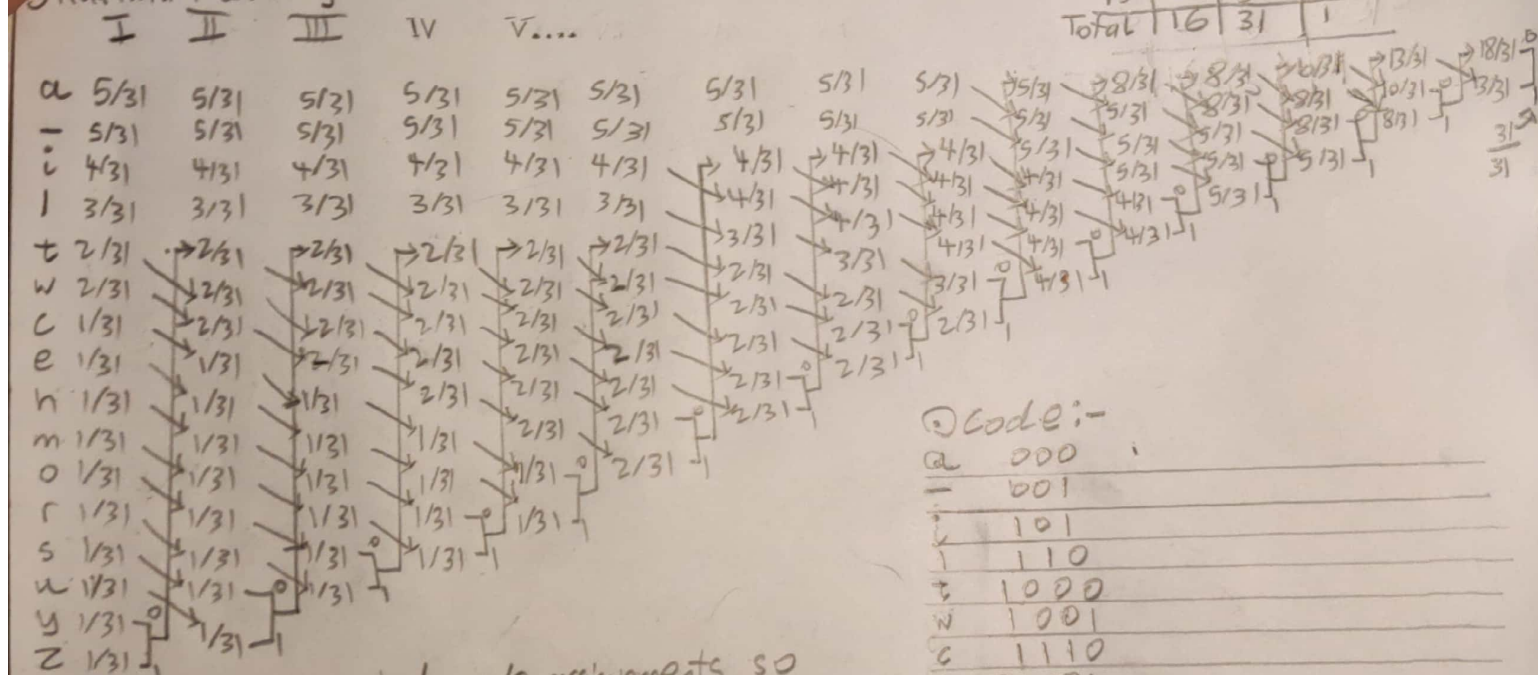 Total 16 31 1
I II III IV V....
a 5/31 5/31 5/31 5/31 5/31 5/31 5/31 5/31 5/31 5/31 8/31 8/31 10/31 13/31 18/31 0
- 5/31 5/31 5/31 5/31 5/31 5/31 5/31 5/31 5/31 5/31 5/31 8/31 8/31 10/31 0 13/31 1
i 4/31 4/31 4/31 4/31 4/31 4/31 4/31 4/31 4/31 5/31 5/31 5/31 8/31 0 8/31 1
31/31
l 3/31 3/31 3/31 3/31 3/31 3/31 4/31 4/31 4/31 4/31 5/31 5/31 0 5/31 1
t 2/31 2/31 2/31 2/31 2/31 2/31 3/31 4/31 4/31 4/31 4/31 0 5/31 1
w 2/31 2/31 2/31 2/31 2/31 2/31 2/31 3/31 4/31 4/31 0 4/31 1
c 1/31 2/31 2/31 2/31 2/31 2/31 2/31 2/31 3/31 0 4/31 1
e 1/31 1/31 2/31 2/31 2/31 2/31 2/31 2/31 0 2/31 1
h 1/31 1/31 1/31 2/31 2/31 2/31 2/31 0 2/31 1
m 1/31 1/31 1/31 1/31 2/31 2/31 0 2/31 1
o 1/31 1/31 1/31 1/31 1/31 0 2/31 1
r 1/31 1/31 1/31 1/31 0 1/31 1
s 1/31 1/31 1/31 0 1/31 1
u 1/31 1/31 0 1/31 1
y 1/31 0 1/31 1
z 1/31 1
Code:-
a 000
- 001
i 101
l 110
t 1000
w 1001
c 1110
so